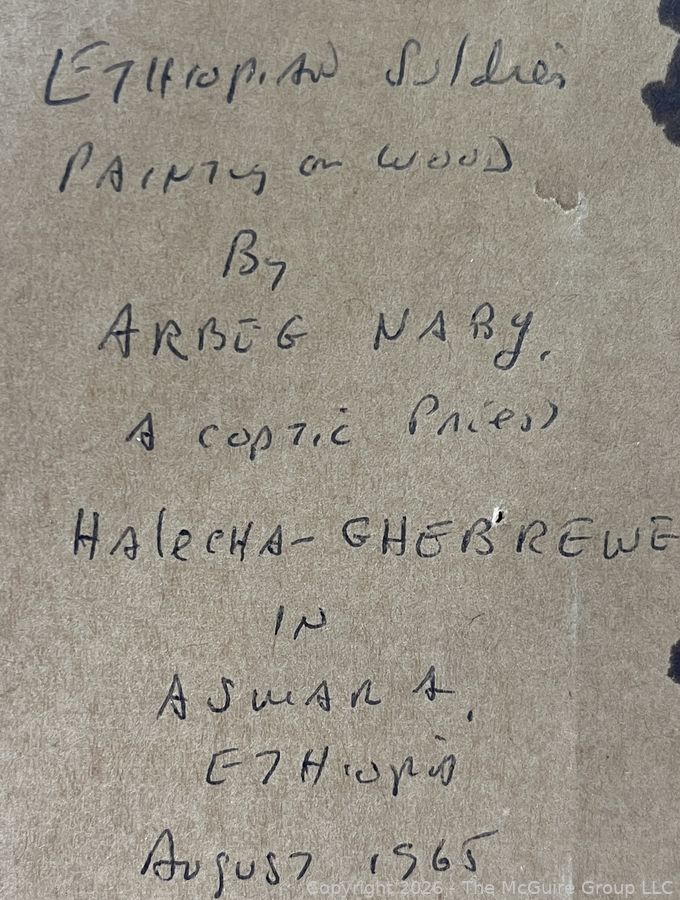 ETHIOPIAN Soldier
PAINTING on WOOD
By
ARBEG NABY.
A COPTIC Priest
HAleCHA- GHEB'REWE
IN
ASMARA,
ETHIOPIA
August 1965
Copyright 2026 - The McGuire Group LLC